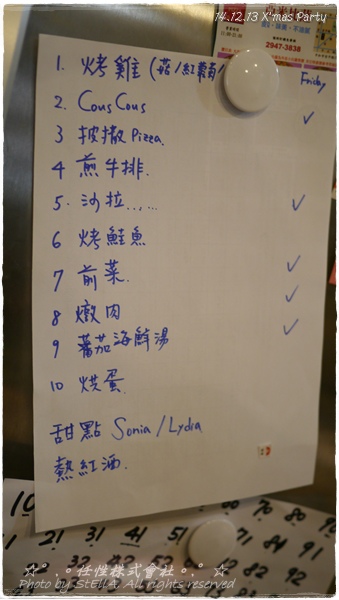 14.12.13 X'mas Party
2947-3838
1. 烤雞 (菇/紅蘿蔔/
Friday
2. CousCous
3 披撒 Pizza.
4 煎牛排.
5. 沙拉......
6 烤鮭魚
7 前菜.
8 燉肉
9 蕃茄海鮮湯
10 烘蛋.
甜點 Sonia/Lydia
熱紅酒.
10
21 31 41 51 91
☆*°.o任性株式會社o.° ☆
Photo by StElla All rights reserved